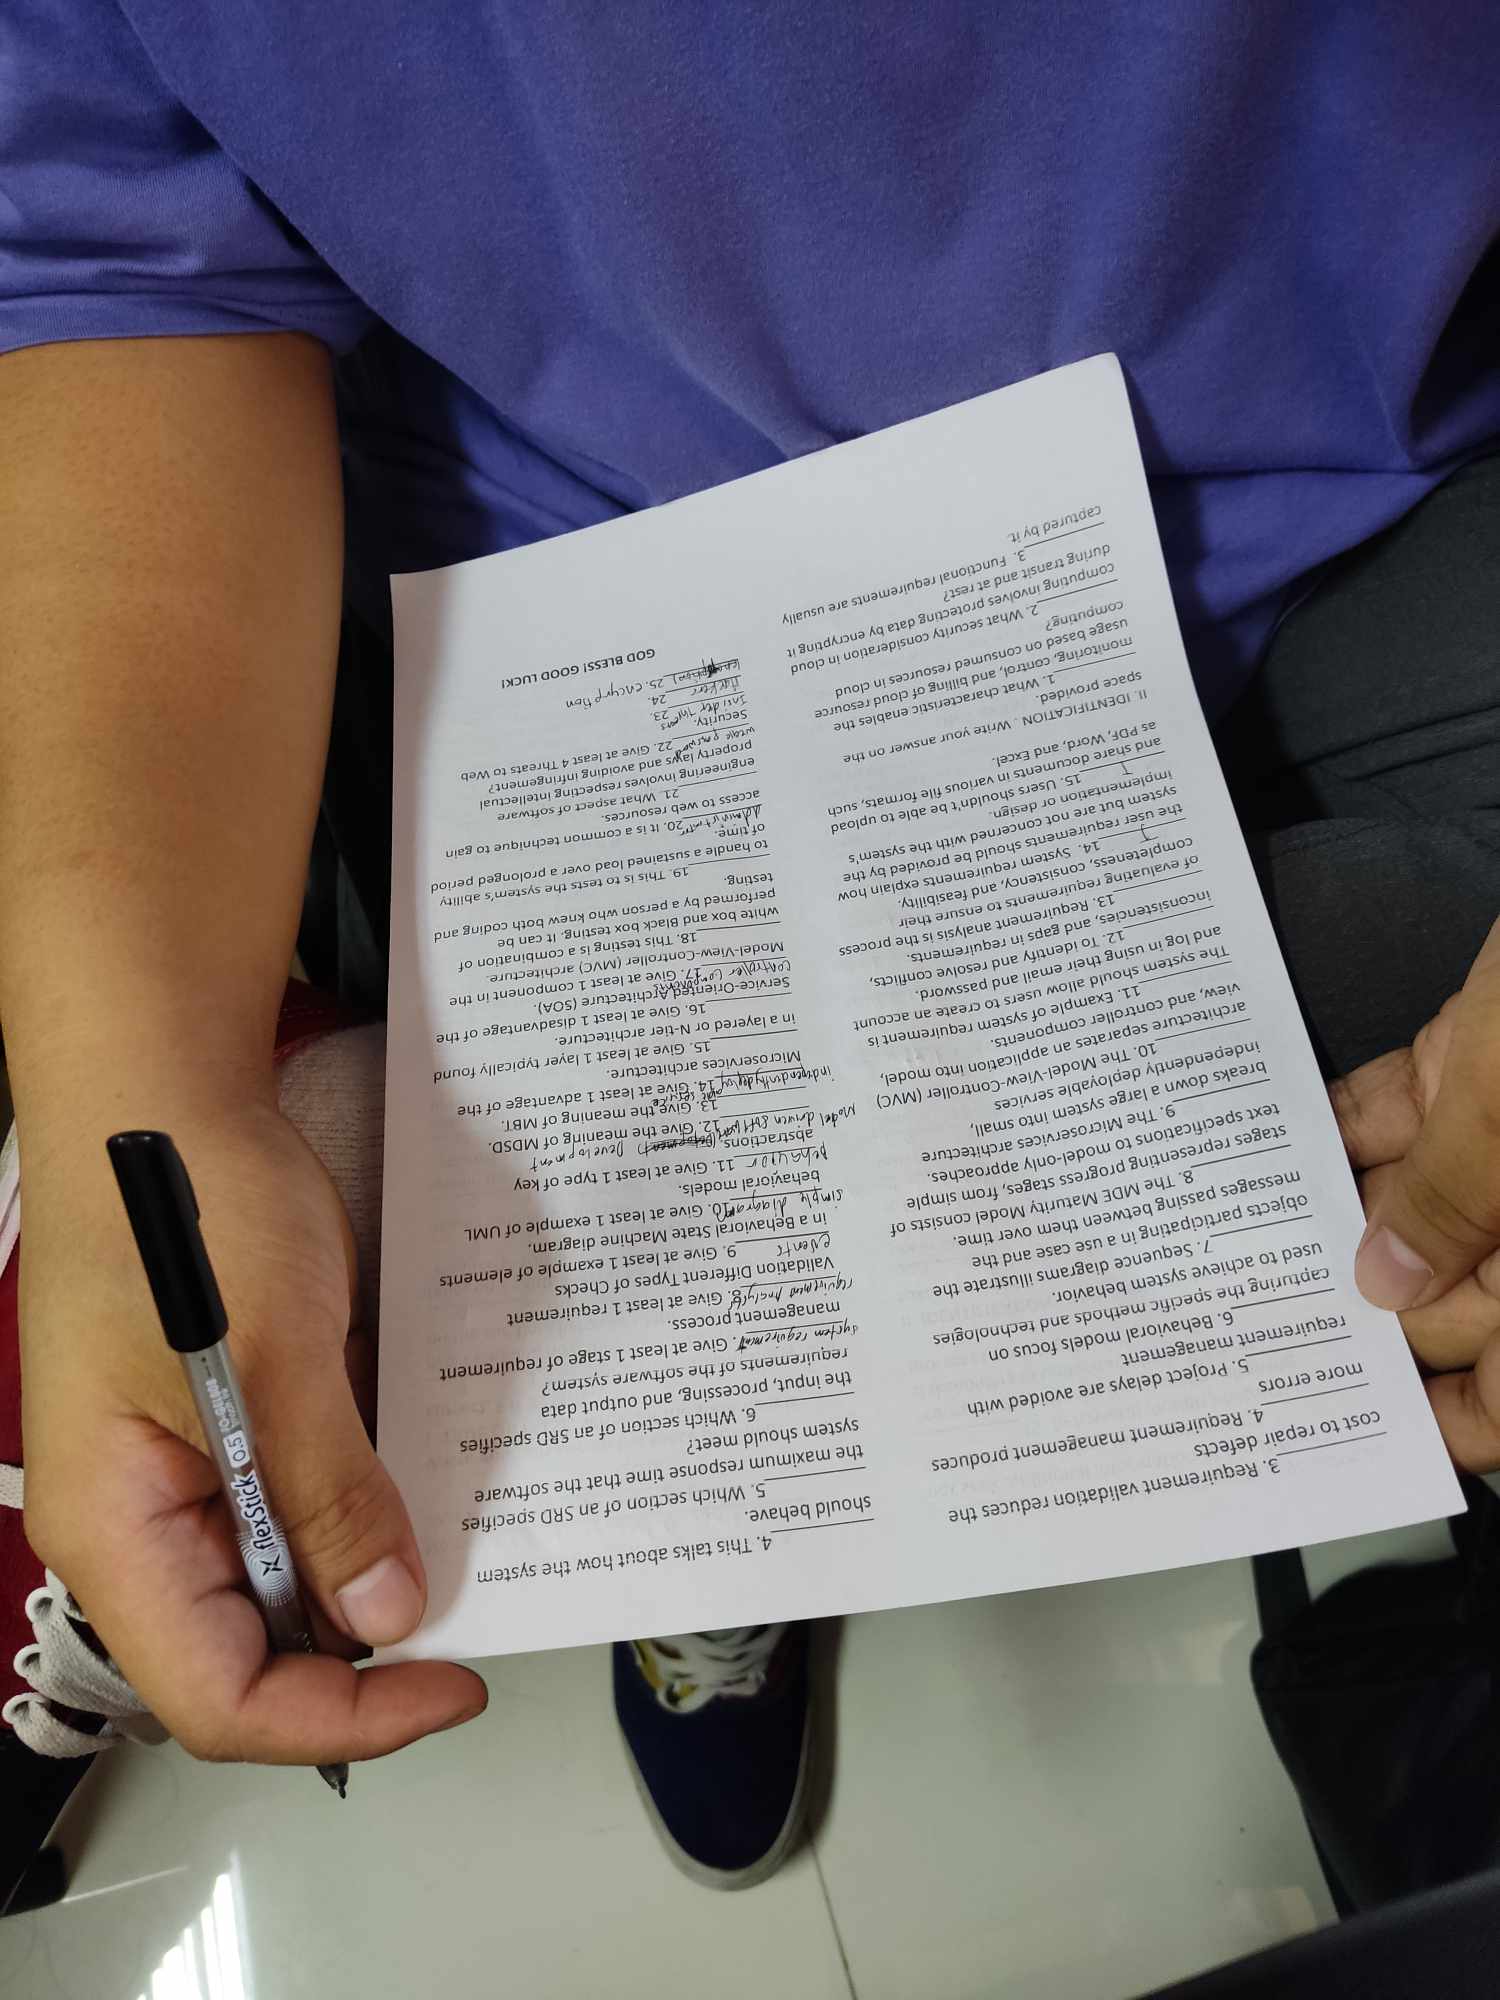 __________3. Requirement validation reduces the
cost to repair defects
__________4. Requirement management produces
more errors
__________5. Project delays are avoided with
requirement management
__________6. Behavioral models focus on
capturing the specific methods and technologies
used to achieve system behavior.
__________7. Sequence diagrams illustrate the
objects participating in a use case and the
messages passing between them over time.
__________8. The MDE Maturity Model consists of
stages representing progress stages, from simple
text specifications to model-only approaches.
__________9. The Microservices architecture
breaks down a large system into small,
independently deployable services
__________10. The Model-View-Controller (MVC)
architecture separates an application into model,
view, and controller components.
__________11. Example of system requirement is
The system should allow users to create an account
and log in using their email and password.
__________12. To identify and resolve conflicts,
inconsistencies, and gaps in requirements.
__________13. Requirement analysis is the process
of evaluating requirements to ensure their
completeness, consistency, and feasibility.
T 14. System requirements explain how
the user requirements should be provided by the
system but are not concerned with the system's
implementation or design.
T 15. Users shouldn't be able to upload
and share documents in various file formats, such
as PDF, Word, and Excel.
II. IDENTIFICATION . Write your answer on the
space provided.
__________1. What characteristic enables the
monitoring, control, and billing of cloud resource
usage based on consumed resources in cloud
computing?
__________2. What security consideration in cloud
computing involves protecting data by encrypting it
during transit and at rest?
__________3. Functional requirements are usually
captured by it.
__________4. This talks about how the system
should behave.
__________5. Which section of an SRD specifies
the maximum response time that the software
system should meet?
__________6. Which section of an SRD specifies
the input, processing, and output data
requirements of the software system?
system requirement. Give at least 1 stage of requirement
management process.
requirement Analysis 8. Give at least 1 requirement
Validation Different Types of Checks
events 9. Give at least 1 example of elements
in a Behavioral State Machine diagram.
simple diagram 10. Give at least 1 example of UML
behavioral models.
behavior 11. Give at least 1 type of key
abstractions.
Model driven Software Development 12. Give the meaning of MDSD.
__________13. Give the meaning of MBT.
independently deployable service 14. Give at least 1 advantage of the
Microservices architecture.
__________15. Give at least 1 layer typically found
in a layered or N-tier architecture.
__________16. Give at least 1 disadvantage of the
Service-Oriented Architecture (SOA).
controller components 17. Give at least 1 component in the
Model-View-Controller (MVC) architecture.
__________18. This testing is a combination of
white box and Black box testing. It can be
performed by a person who knew both coding and
testing.
__________19. This is to tests the system's ability
to handle a sustained load over a prolonged period
of time.
20. It is a common technique to gain
access to web resources.
__________21. What aspect of software
engineering involves respecting intellectual
property laws and avoiding infringement?
22. Give at least 4 Threats to Web
Security.
Insider 23.
24.
25. encyrption
GOD BLESS! GOOD LUCK!
flexStick 0.5